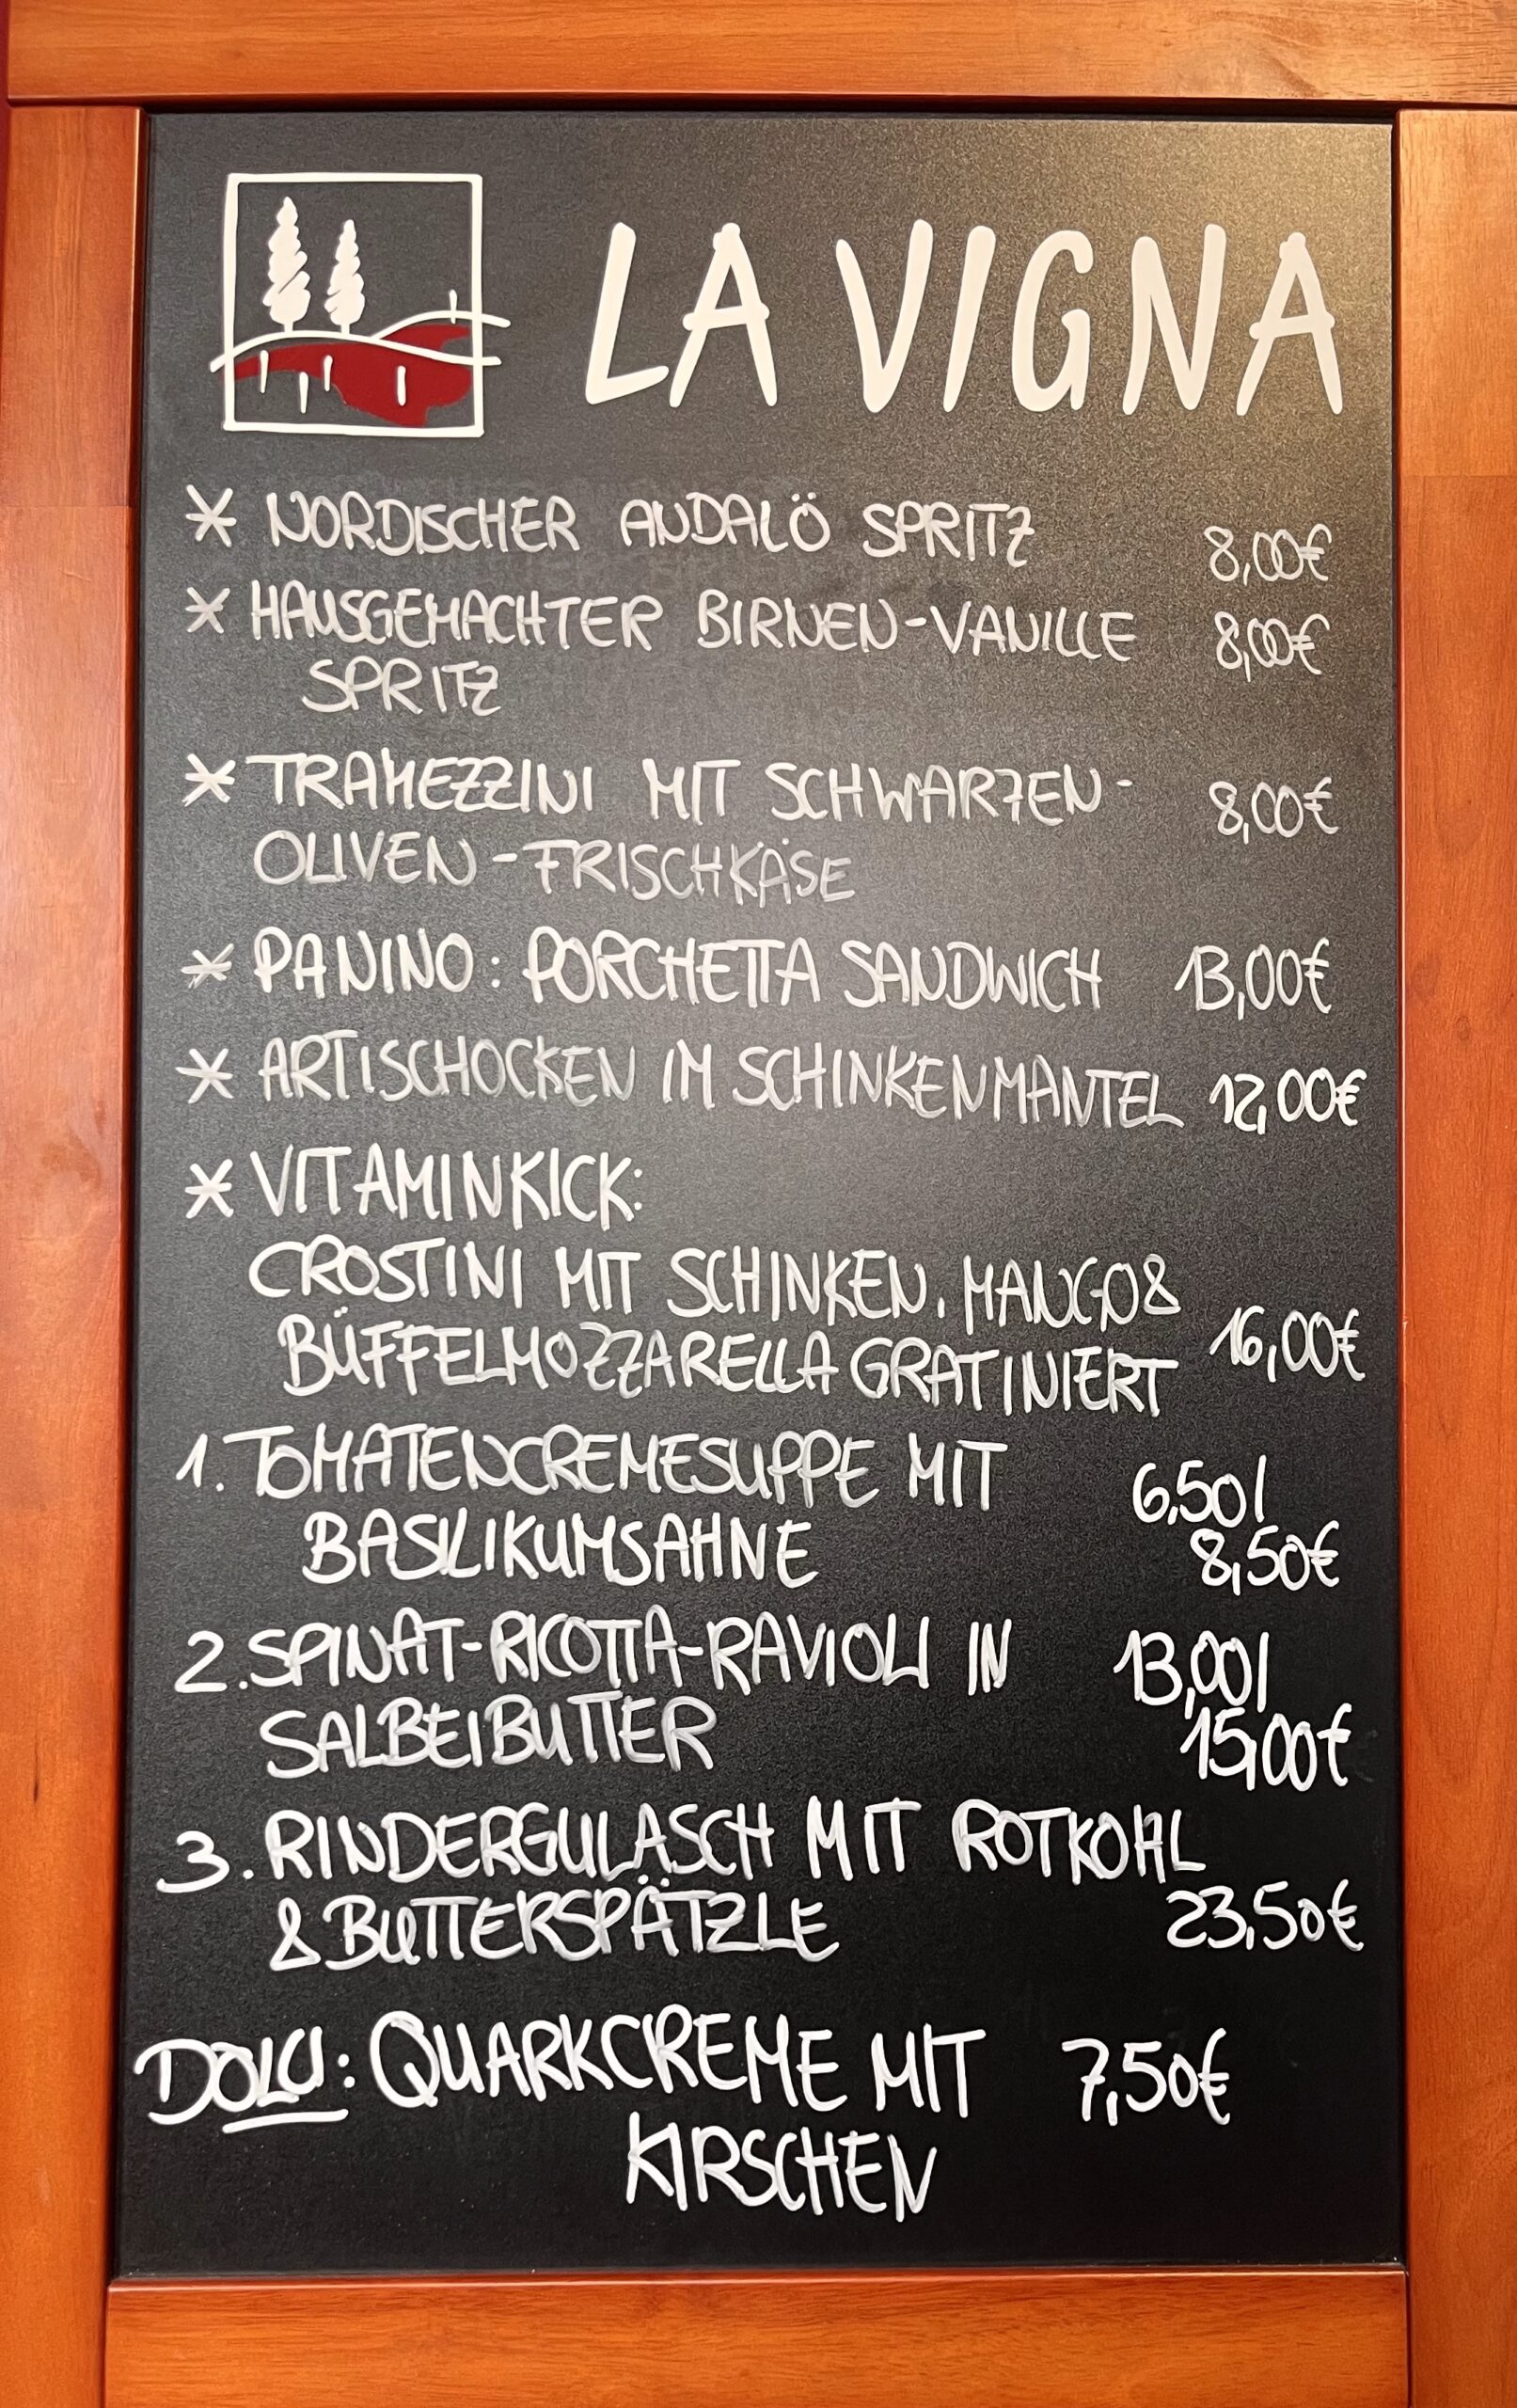 LA VIGNA
* NORDISCHER ANDALÖ SPRITZ 8,00€
* HAUSGEMACHTER BIRNEN-VANILLE 8,00€
SPRITZ
* TRAMEZZINI MIT SCHWARZEN- 8,00€
OLIVEN-FRISCHKÄSE
* PANINO: PORCHETTA SANDWICH 13,00€
* ARTISCHOCKEN IM SCHINKENMANTEL 12,00€
* VITAMINKICK:
CROSTINI MIT SCHINKEN, MANGO &
BÜFFELMOZZARELLA GRATINIERT 16,00€
1. TOMATENCREMESUPPE MIT 6,50/
BASILIKUMSAHNE 8,50€
2. SPINAT-RICOTTA-RAVIOLI IN 13,00/
SALBEIBUTTER 15,00€
3. RINDERGULASCH MIT ROTKOHL
& BUTTERSPÄTZLE 23,50€
DOLCI: QUARKCREME MIT 7,50€
KIRSCHEN